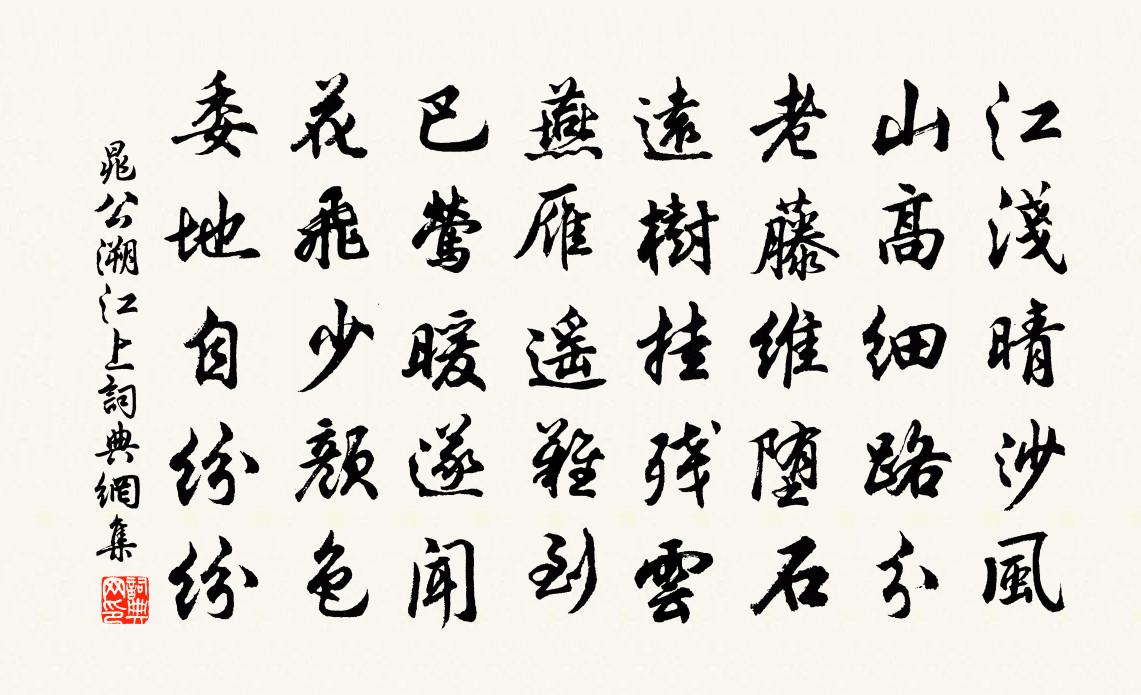 江淺晴沙風
山高細路分
老藤維堕石
遠樹挂残雲
燕雁遥難到
巴鶯暖遂聞
花飛少顔色
委地自紛紛
晁公溯江上詞典網集
詞典